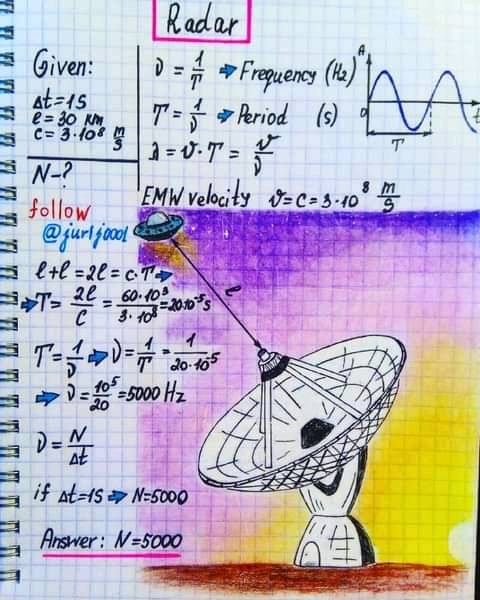 Radar
Given:
Δt=1S
ℓ=30 км
c=3·10⁸ m/s
N-?
ν = 1/T ➔ Frequency (Hz)
T = 1/ν ➔ Period (s)
λ = v·T = v/ν
EMW velocity v=c=3·10⁸ m/s
A
0
t
T
follow
@jurijooo1
ℓ+ℓ=2ℓ=c·T➔
➔T=2ℓ/c=60·10³/3·10⁸=20·10⁻⁵s
ℓ
T=1/ν➔ν=1/T=1/20·10⁻⁵
➔ν=10⁵/20=5000 Hz
ν=N/Δt
if Δt=1S➔N=5000
Answer: N=5000